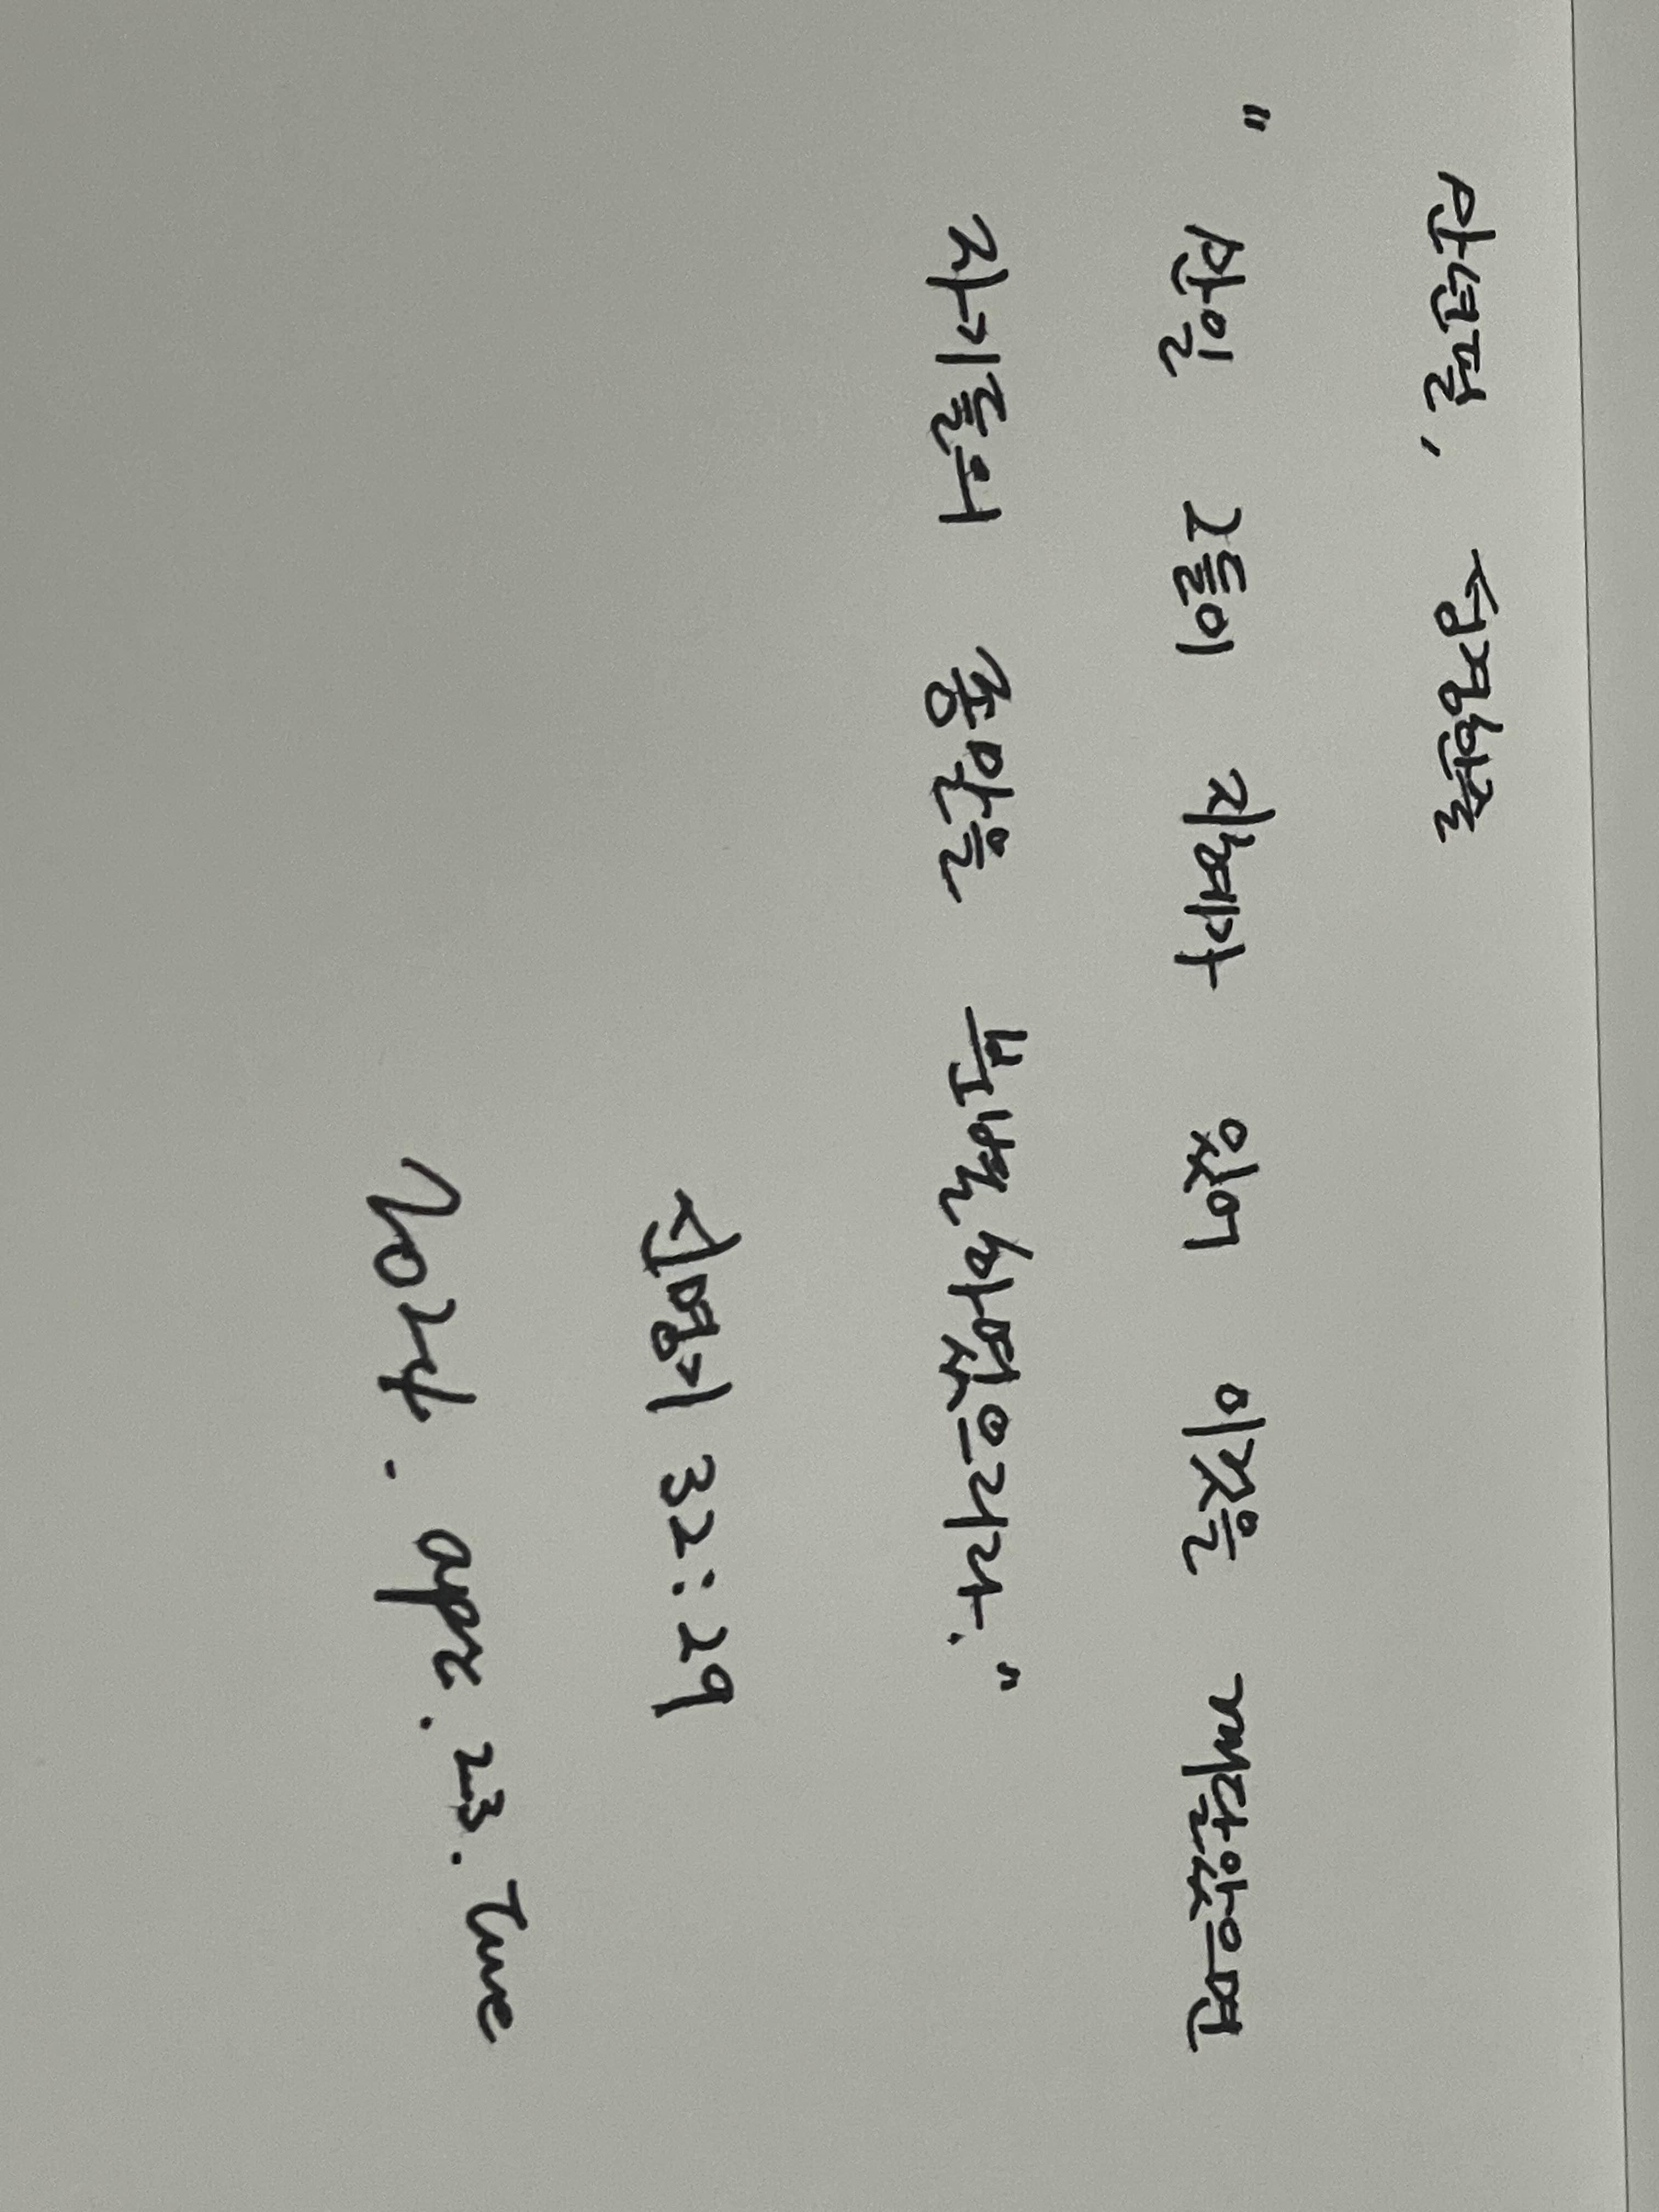 만년필, 성경한줄
" 만일 그들이 지혜가 있어 이것을 깨달았으면
자기들의 종말을 분별하였으리라. "
신명기 32:29
2024. apr. 23. Tue